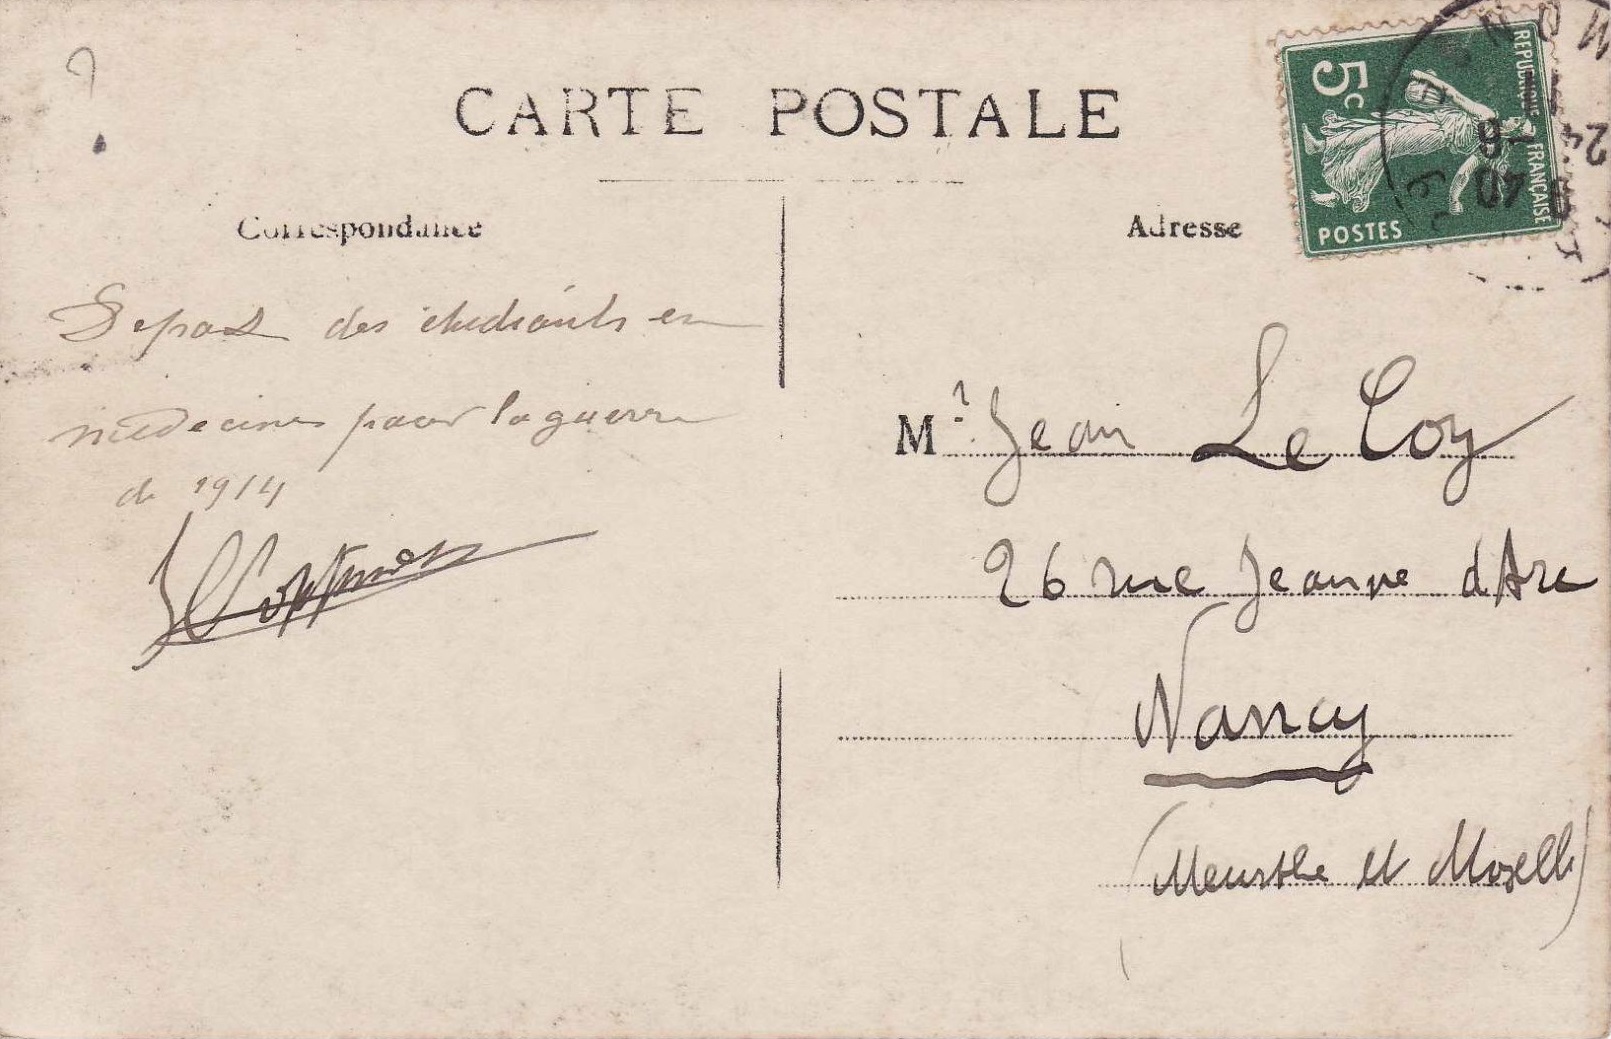 CARTE POSTALE
5c
REPUBLIQUE FRANÇAISE
POSTES
Correspondance
Adresse
Depart des étudiants en
médecine pour la guerre
de 1914
Mr. Jean Le Coz
26 rue Jeanne d'Arc
Nancy
(Meurthe et Moselle)